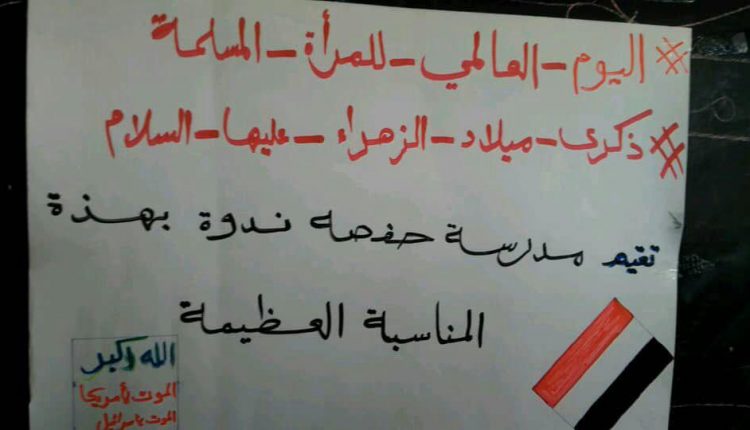 #اليوم-العالمي-للمرأة-المسلمة
#ذكرى-ميلاد-الزهراء-عليها-السلام
تقيم مدرسة حفصه ندوة بهذة
المناسبة العظيمة
الله اكبر
الموت لأمريكا
الموت لاسرائيل